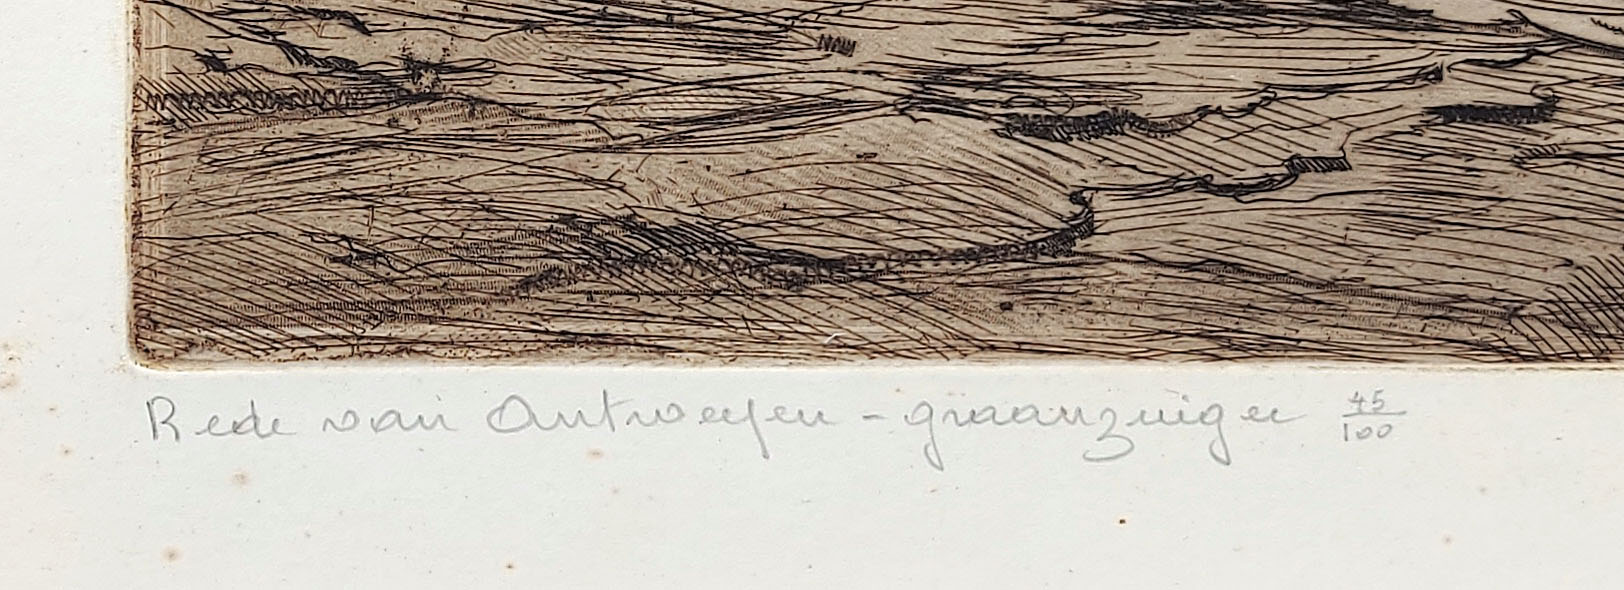 Rede van Antwerpen - graanzuiger 45/100